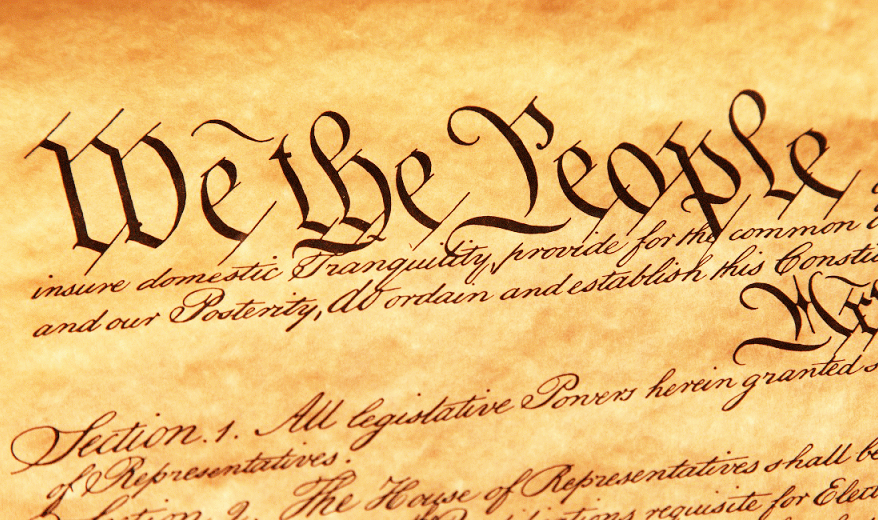 We the People
insure domestic Tranquility, provide for the common
and our Posterity, do ordain and establish this
Section. 1. All legislative Powers herein granted
of Representatives.
Section. 2. The House of Representatives shall be
requisite for